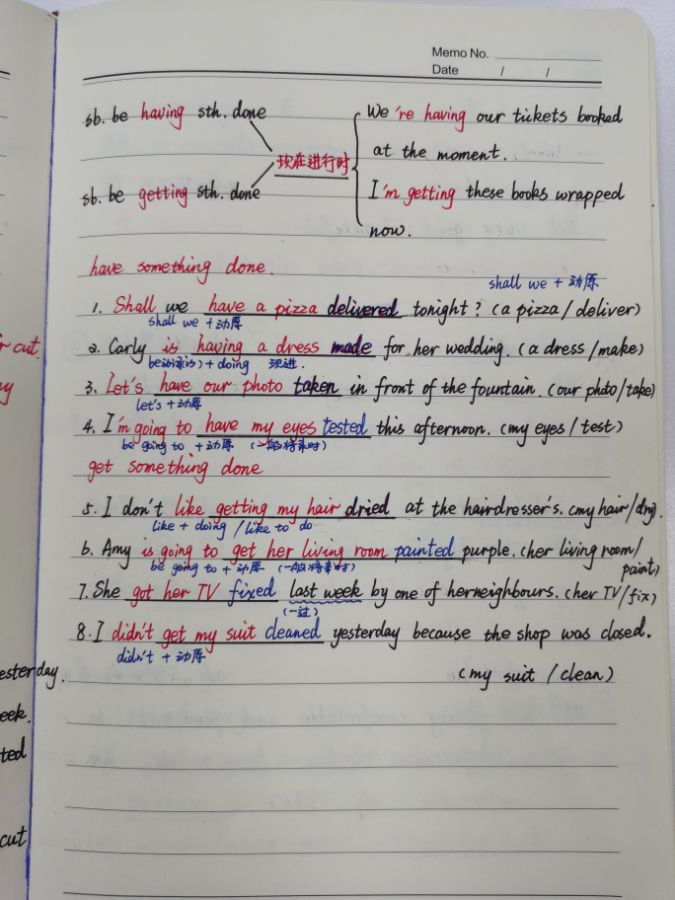 Memo No.
Date / /
sb. be having sth. done
sb. be getting sth. done
现在进行时
We're having our tickets booked
at the moment.
I'm getting these books wrapped
now.
have something done.
shall we + 动原
1. Shall we have a pizza delivered tonight? (a pizza / deliver)
shall we + 动原
2. Carly is having a dress made for her wedding. (a dress / make)
+ doing 现进.
3. Let's have our photo taken in front of the fountain. (our photo / take)
let's + 动原
4. I'm going to have my eyes tested this afternoon. (my eyes / test)
be going to + 动原 (一般将来时)
get something done
5. I don't like getting my hair dried at the hairdresser's. (my hair / dry).
like + doing / like to do
6. Amy is going to get her living room painted purple. (her living room /
paint)
be going to + 动原 (一般将来时)
7. She got her TV fixed last week by one of her neighbours. (her TV / fix)
(一过)
8. I didn't get my suit cleaned yesterday because the shop was closed.
didn't + 动原
(my suit / clean)
cut.
yesterday.
eek.
ted
cut